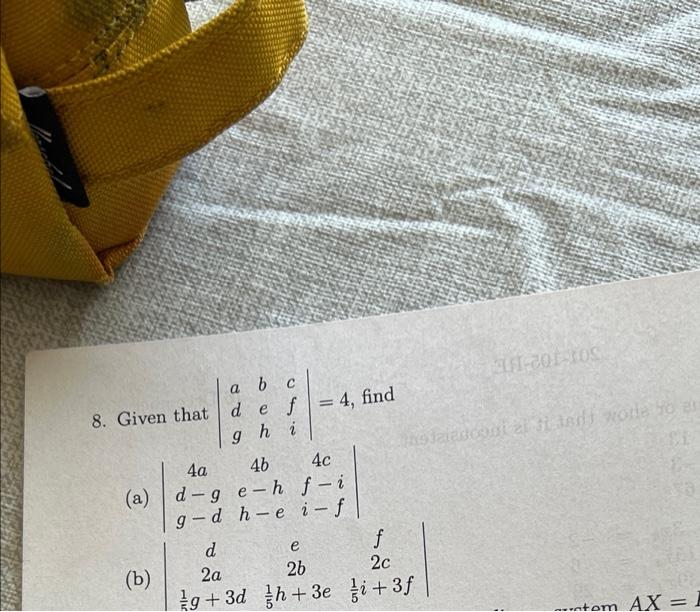 8. Given that | a b c | = 4, find
| d e f |
| g h i |
(a) | 4a 4b 4c |
| d − g e − h f − i |
| g − d h − e i − f |
(b) | d e f |
| 2a 2b 2c |
| 1/5g + 3d 1/5h + 3e 1/5i + 3f |
AX =